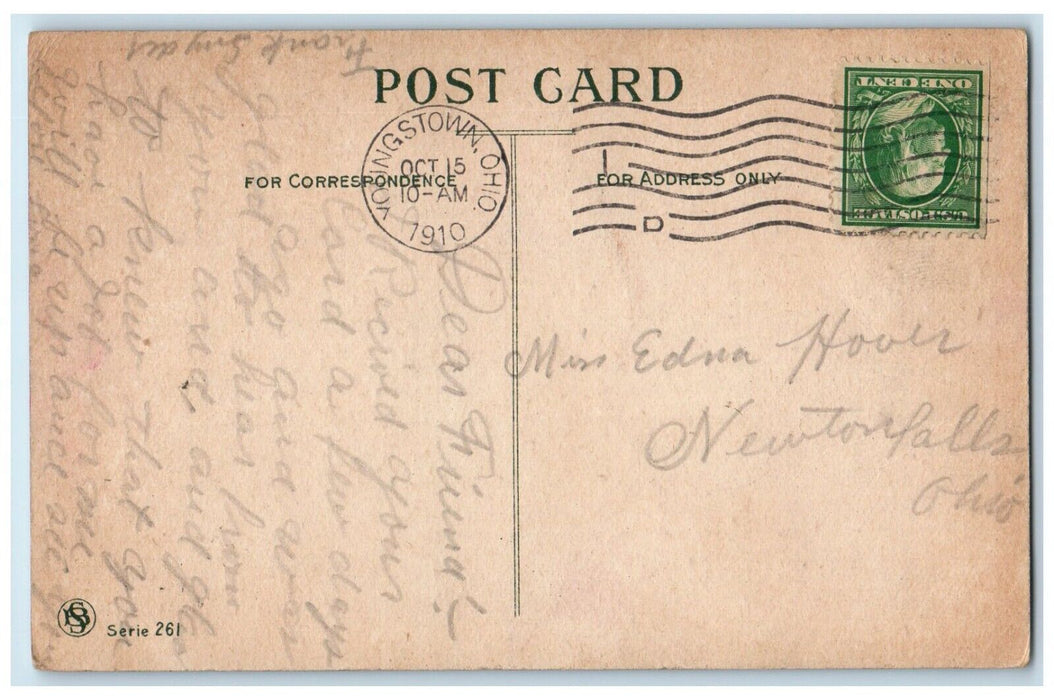 POST CARD
FOR CORRESPONDENCE
FOR ADDRESS ONLY
YOUNGSTOWN, OHIO.
OCT 15
10-AM
1910
D
ONE CENT
U.S. POSTAGE
Miss Edna Hover
Newton falls
Ohio
Dear Friend:-
Recived your
card a few days
ago and was
glad to hear from
you and
to know that you
had a lot for me
will
Frank Snyder
Serie 261